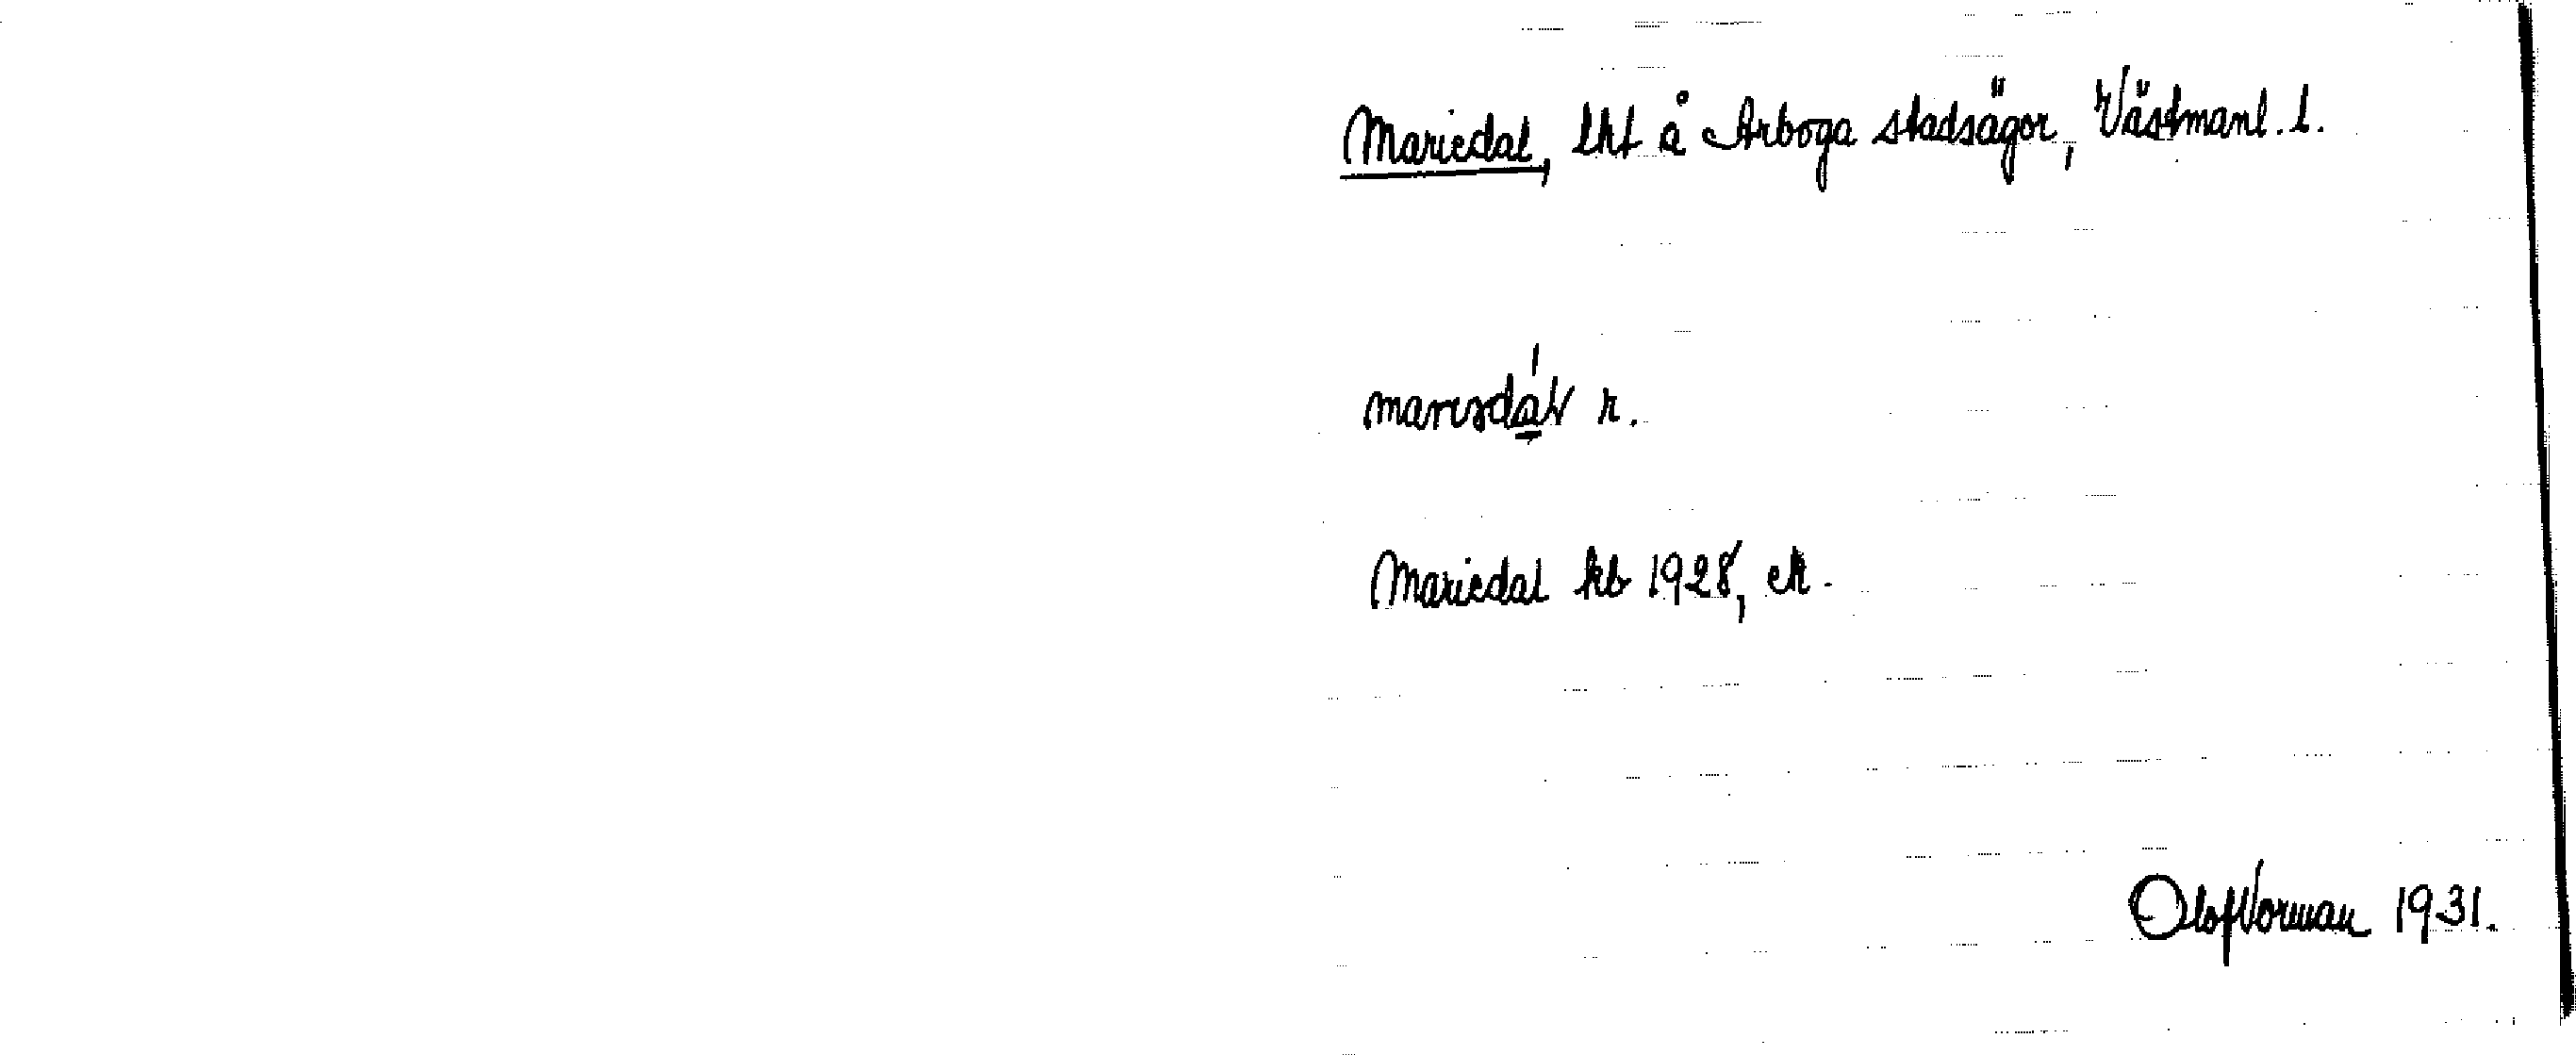 Mariedal, lht å Arboga stadsägor, Västmanl. l.
r.
Mariedal kb 1928, ek.
Olof Vorman 1931.